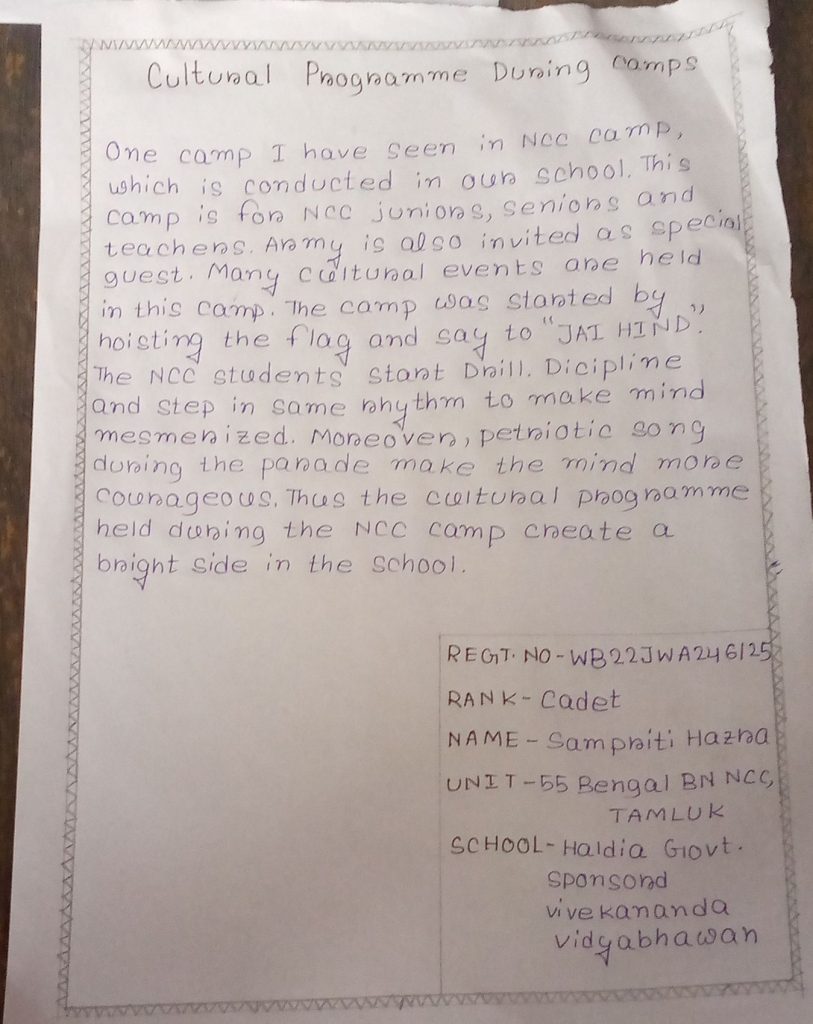 Cultural Programme During Camps
One camp I have seen in NCC camp,
which is conducted in our school. This
camp is for NCC juniors, seniors and
teachers. Army is also invited as special
guest. Many cultural events are held
in this camp. The camp was started by
hoisting the flag and say to "JAI HIND".
The NCC students start Drill. Dicipline
and step in same rhythm to make mind
mesmerized. Moreover, petriotic song
during the parade make the mind more
courageous. Thus the cultural programme
held during the NCC camp create a
bright side in the school.
REGT. NO - WB22JWA246125
RANK - Cadet
NAME - Sampriti Hazra
UNIT - 55 Bengal BN NCC,
TAMLUK
SCHOOL - Haldia Govt.
Sponsord
Vivekananda
Vidyabhawan